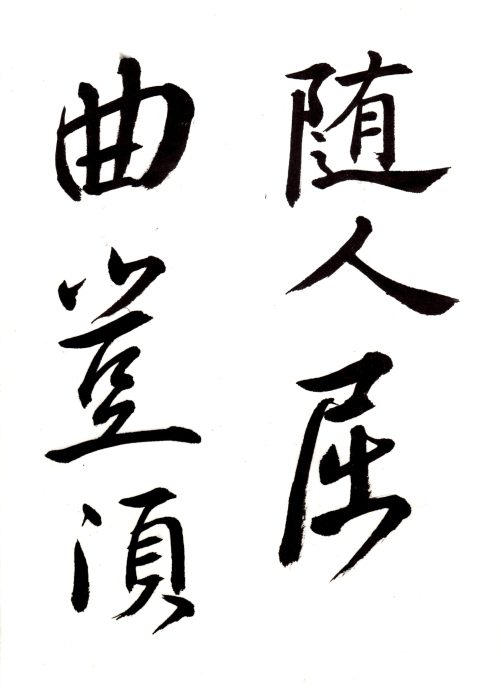 随人屈
曲豈須